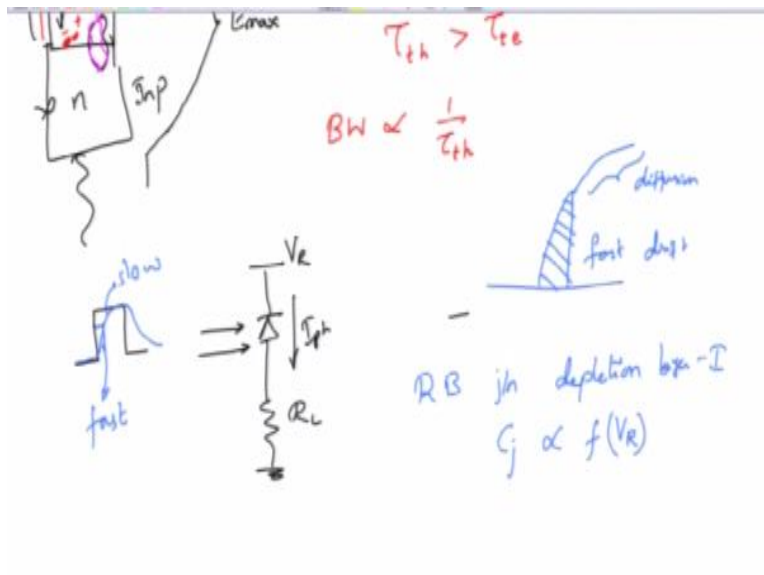 Emax
τth > τte
n
Inp
BW ∝ 1/τth
diffusion
fast drift
slow
VR
Iph
fast
RL
RB jn depletion layer - I
Cj ∝ f(VR)